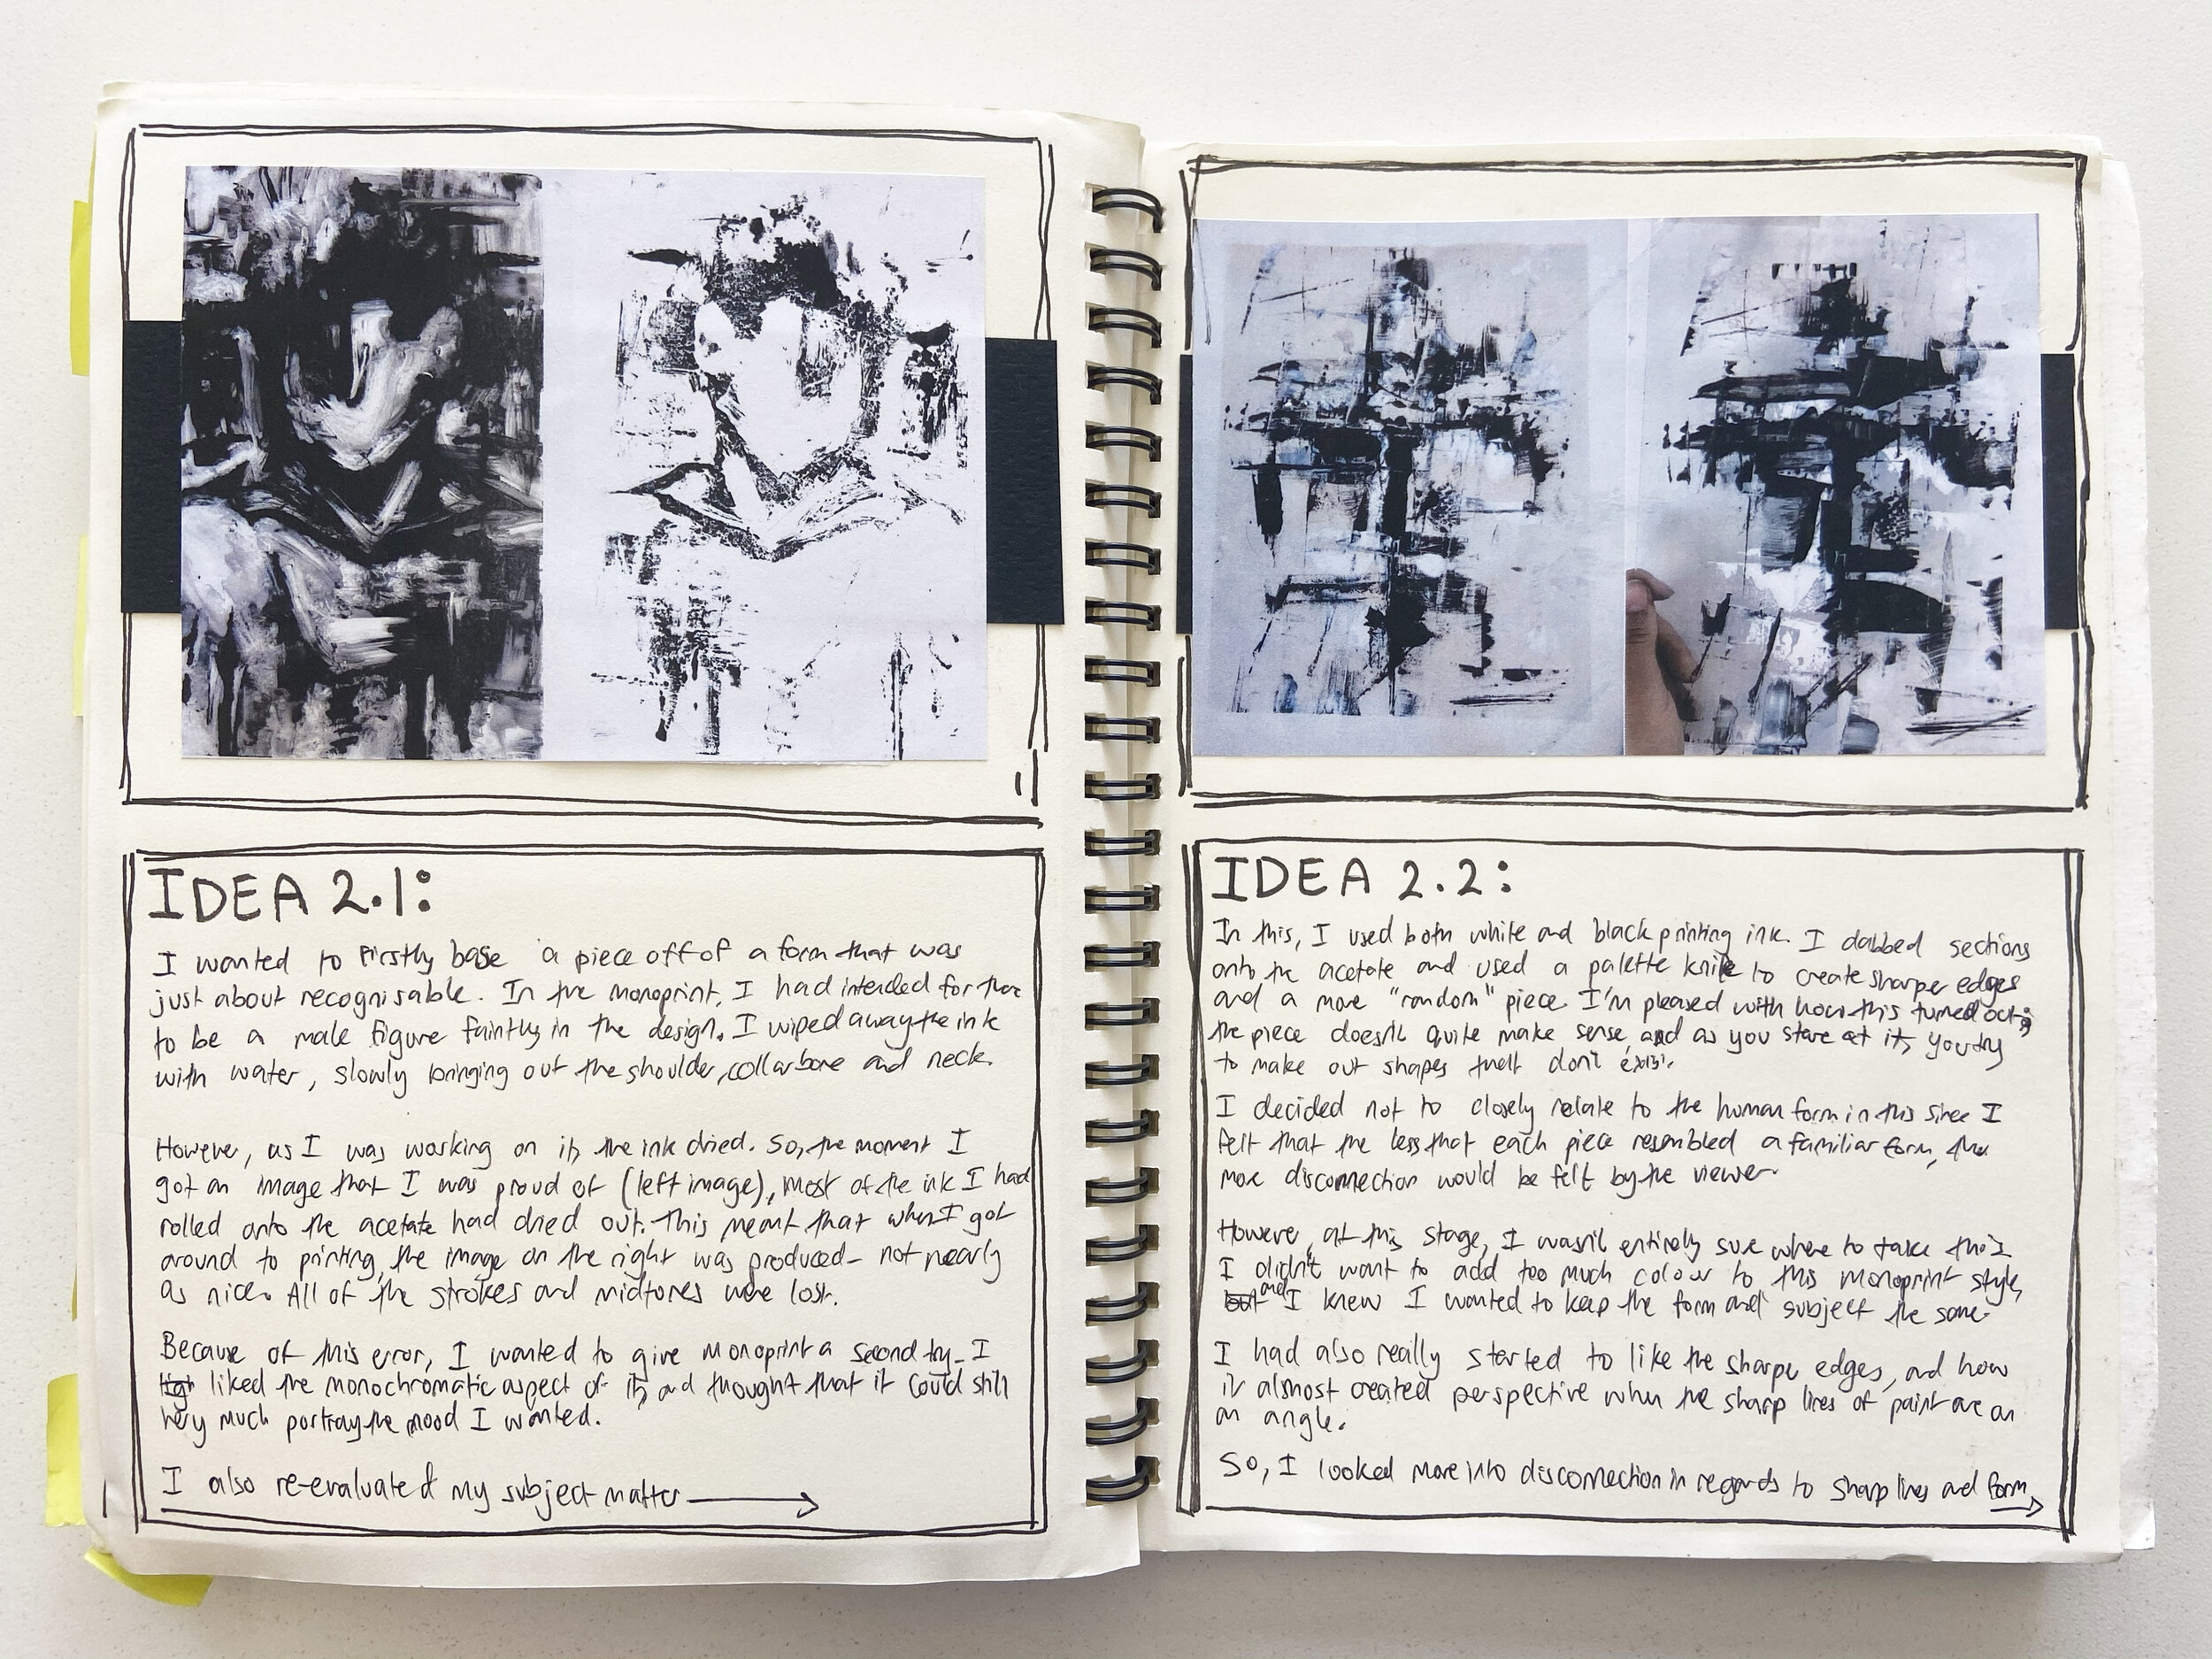 IDEA 2.1:
I wanted to firstly base a piece off of a form that was
just about recognisable. In the monoprint, I had intended for there
to be a male figure faintly in the design. I wiped away the ink
with water, slowly bringing out the shoulder, collarbone and neck.
However, as I was working on it, the ink dried. So, the moment I
got an image that I was proud of (left image), most of the ink I had
rolled onto the acetate had dried out. This meant that when I got
around to printing, the image on the right was produced - not nearly
as nice. All of the strokes and midtones were lost.
Because of this error, I wanted to give monoprint a second try. I
liked the monochromatic aspect of it, and thought that it could still
very much portray the mood I wanted.
I also re-evaluated my subject matter
IDEA 2.2:
In this, I used both white and black printing ink. I dabbed sections
onto the acetate and used a palette knife to create sharper edges
and a more "random" piece. I'm pleased with how this turned out;
the piece doesn't quite make sense, and as you stare at it, you try
to make out shapes that don't exist.
I decided not to closely relate to the human form in this since I
felt that the less that each piece resembled a familiar form, the
more disconnection would be felt by the viewer.
However, at this stage, I wasn't entirely sure where to take this. I
I didn't want to add too much colour to this monoprint style,
but and I knew I wanted to keep the form and subject the same.
I had also really started to like the sharper edges, and how
it almost created perspective when the sharp lines of paint are on
an angle.
So, I looked more into disconnection in regards to sharp lines and form